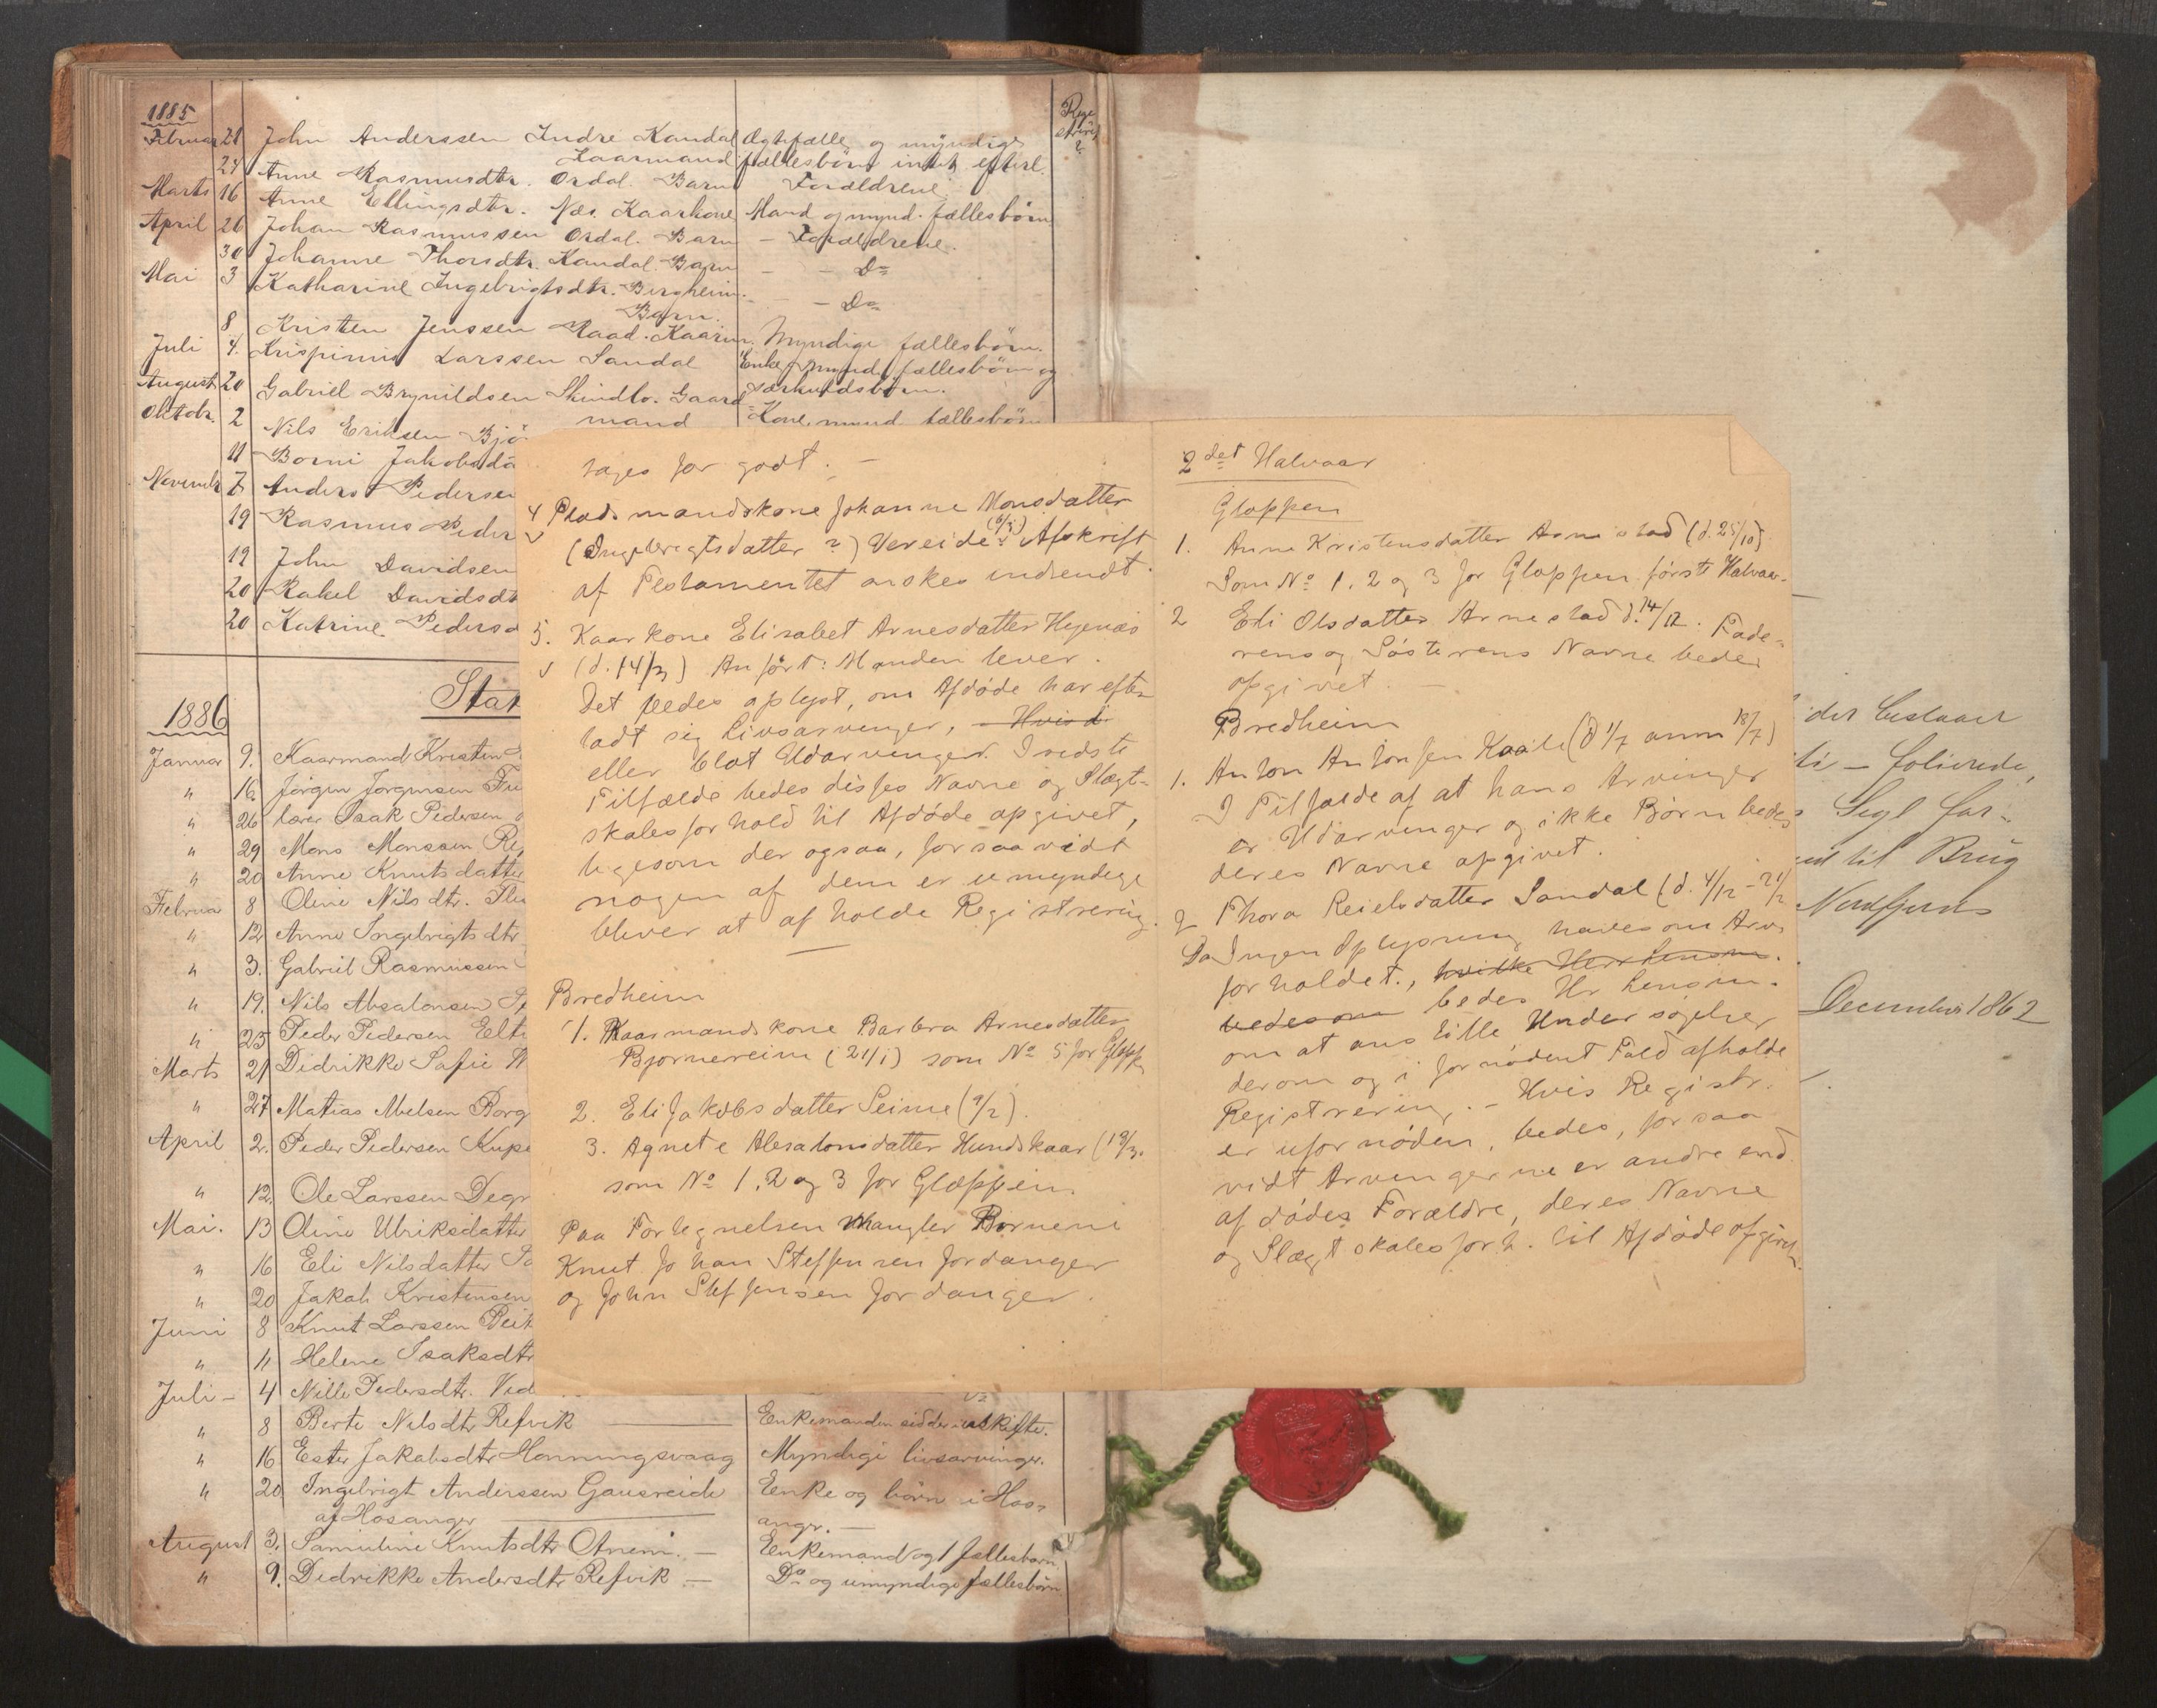 1885
Februar 21 John Anderssen Indre Kandal Ægtefælle og myndige
Kaarmand fællesbörn intet efterl.
24 Anne Rasmusdtr. Ordal. Barn Forældrene
Marts 16 Anne Ellingsdtr. Næs. Kaarkone Mand og mynd. fællesbörn
April 26 Johan Rasmussen Ordal. Barn – Forældrene.
30 Johanne Thorsdtr. Kandal. Barn – – Do
Mai 3 Katharine Ingebrigtsdtr. Bergheim. – – Do
Barn.
8 Kristen Jenssen Raad. Kaarm. Myndige fællesbörn.
Juli 4. Krispinus Larssen Sandal Enke, mynd. fællesbörn og
særkuldsbörn.
August 20 Gabriel Brynildsen Skindlo. Gaard
mand Kone, mynd. fællesbörn
Oktobr. 2 Nils Eriksen Bjö
11 Borni Jakobsda
Novembr 7 Anders Pedersen
19 Rasmus Peder
19 John Davidsen
20 Rakel Davidsdt
20 Katrine Pedersd
Stat
1886
Januar 9. Kaarmand Kristen
" 16 Jörgen Jörgensen
" 26 Isak Pedersen
" 29 Mons Monssen
" 20 Anne Knutsdatter
Februar 8 Oline Nilsdtr.
" 12 Anne Ingebrigtsdtr
" 3. Gabriel Rasmussen
" 19. Nils Absalonsen
" 25 Peder Pedersen
Marts 21 Didrikke Sofie
" 27 Matias Abelsen
April 2. Peder Pedersen
" 12. Ole Larssen
Mai. 13 Oline Ulriksdatter
" 16 Eli Nilsdatter
" 20 Jakob Kristensen
Juni 8 Knut Larssen
" 11 Helene Isaksdtr
Juli – 4 Nille Pedersdtr.
" 8 Berte Nilsdtr Refvik Enkemanden sidder i uskifte.
" 16 Ester Jakobsdtr Honningsvaag Myndige livsarvinger.
" 20 Ingebrigt Anderssen Gausereide Enke og börn i Hos-
af Hosanger anger. –
August 3. Samueline Knutsdtr Otneim. – Enkemand og 1 fællesbarn
" 9. Didrikke Andersdtr Refvik – Do og umyndige fællesbörn
tages for godt. –
4 Pladsmandskone Johanne Monsdatter
(Ingebrigtsdatter ?) Vereide. Afskrift
af Testamentet ønskes indsendt.
5. Kaarkone Elisabet Arnesdatter Hyenæs
(d. 14/3) Anført: Manden lever.
Det bedes oplyst, om Afdøde har efter
ladt sig Livsarvinger, Hvis d
eller blot Udarvinger. I sidste
Tilfælde bedes disses Navne og Slægt-
skabsforhold til Afdøde opgivet,
ligesom der ogsaa, forsaavidt
nogen af dem er umyndige
bliver at afholde Registrering.
Bredheim
1. Kaarmandskone Barbra Arnesdatter
Bjørnereim (21/1) som No 5 for Glopp
2. Eli Jakobsdatter Seime (9/2).
3. Agnete Absalonsdatter Hundskaar (19/3.
som No 1, 2 og 3 for Gloppen.
Paa Fortegnelsen mangler Børnene
Knut Johan Steffensen Jordanger
og John Steffensen Jordanger.
2det Halvaar
Gloppen
1. Anne Kristensdatter Arnestad (d. 25/10)
Som No 1, 2 og 3 for Gloppen første Halvaar.
2 Eli Olsdatter Arnestad d. 14/12. Fade-
rens og Søsterens Navne bedes
opgivet. –
Bredheim
1. Anton Antonsen Kaale (d 1/7 anm 18/7)
I Tilfælde af at hans Arvinger
er Udarvinger og ikke Børn bedes
deres Navne opgivet.
2 Thora Reielsdatter Sandal (d. 4/12 – 21/12
Da Ingen Oplysning haves om Arve
forholdet., hvilke Herr Lensm.
bedes om bedes Hr Lensm.
om at anstille Undersøgelser
derom og i fornødent Fald afholde
Registrering. – Hvis Registr.
er ufornøden, bedes, forsaa
vidt Arvingerne er andre end
afdødes Forældre, deres Navne
og Slægtskabsforh. til Afdøde opgivet.
der bestaaer
ti – folierede,
Segl for-
til Brug
Nordfjords
December 1862